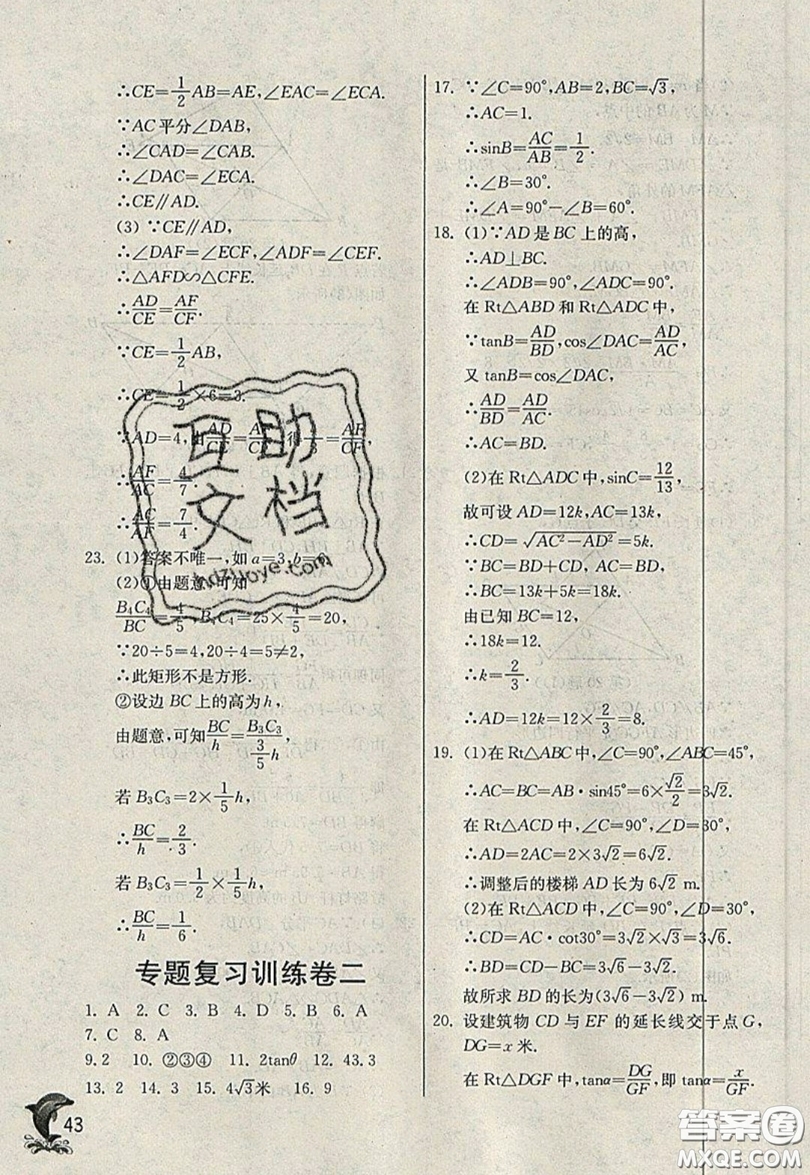 ∴CE=1/2AB=AE,∠EAC=∠ECA.
∵AC平分∠DAB,
∴∠CAD=∠CAB.
∴∠DAC=∠ECA.
∴CE∥AD.
(3) ∵CE∥AD,
∴∠DAF=∠ECF,∠ADF=∠CEF.
∴△AFD∽△CFE.
∴AD/CE=AF/CF.
∵CE=1/2AB,
∴CE=1/2×6=3.
∵AD=4,
∴AF/AC=4/7.
∴AC/AF=7/4.
23. (1)答案不唯一,如a=3,
(2)①由题意,可知
B₄C₄/BC=4/5,B₄C₄=25×4/5=20,
∵20÷5=4,20÷4=5≠2,
∴此矩形不是方形.
②设边BC上的高为h,
由题意,可知BC/h=B₃C₃/(3/5h),
若B₃C₃=2×1/5h,
∴BC/h=2/3.
若B₃C₃=1/2×1/5h,
∴BC/h=1/6.
专题复习训练卷二
1. A 2. C 3. A 4. D 5. B 6. A
7. C 8. A
9. 2 10. ②③④ 11. 2tanθ 12. 43.3
13. 2 14. 3 15. 4√3米 16. 9
43
17. ∵∠C=90°,AB=2,BC=√3,
∴AC=1.
∴sinB=AC/AB=1/2.
∴∠B=30°.
∴∠A=90°-∠B=60°.
18. (1)∵AD是BC上的高,
∴AD⊥BC.
∴∠ADB=90°,∠ADC=90°.
在Rt△ABD和Rt△ADC中,
∵tanB=AD/BD,cos∠DAC=AD/AC,
又tanB=cos∠DAC,
∴AD/BD=AD/AC.
∴AC=BD.
(2)在Rt△ADC中,sinC=12/13,
故可设AD=12k,AC=13k,
∴CD=√AC²-AD²=5k.
∵BC=BD+CD,AC=BD,
∴BC=13k+5k=18k.
由已知BC=12,
∴18k=12.
∴k=2/3.
∴AD=12k=12×2/3=8.
19. (1)在Rt△ABC中,∠C=90°,∠ABC=45°,
∴AC=BC=AB·sin45°=6×√2/2=3√2.
在Rt△ACD中,∠C=90°,∠D=30°,
∴AD=2AC=2×3√2=6√2.
∴调整后的楼梯AD长为6√2 m.
(2)在Rt△ACD中,∠C=90°,∠D=30°,
∴CD=AC·cot30°=3√2×√3=3√6.
∴BD=CD-BC=3√6-3√2.
故所求BD的长为(3√6-3√2)m.
20. 设建筑物CD与EF的延长线交于点G,
DG=x米.
在Rt△DGF中,tanα=DG/GF,即tanα=x/GF.
互助
文档
答案圈
MXQE.COM